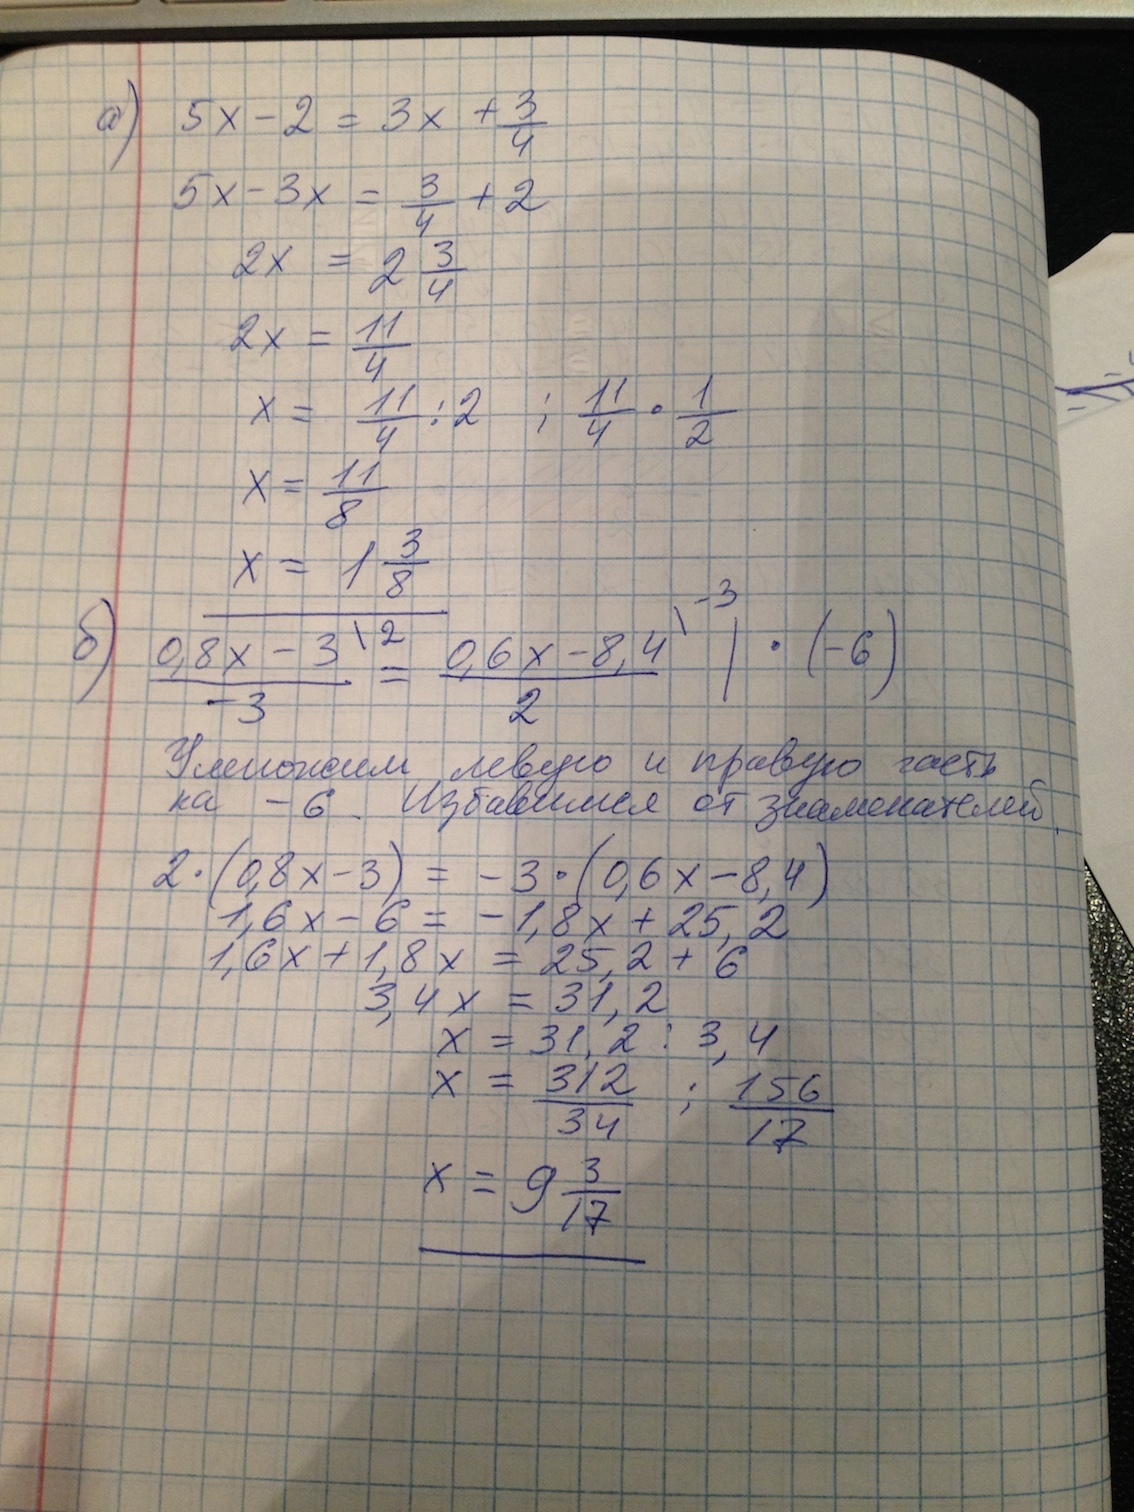 а) 5x - 2 = 3x + 3/4
5x - 3x = 3/4 + 2
2x = 2 3/4
2x = 11/4
x = 11/4 : 2 ; 11/4 · 1/2
x = 11/8
x = 1 3/8
б) (0,8x - 3)/-3 \2 = (0,6x - 8,4)/2 \-3 | · (-6)
Умножим левую и правую часть
на -6. Избавимся от знаменателей.
2·(0,8x-3) = -3·(0,6x-8,4)
1,6x - 6 = -1,8x + 25,2
1,6x + 1,8x = 25,2 + 6
3,4x = 31,2
x = 31,2 : 3,4
x = 312/34 ; 156/17
x = 9 3/17